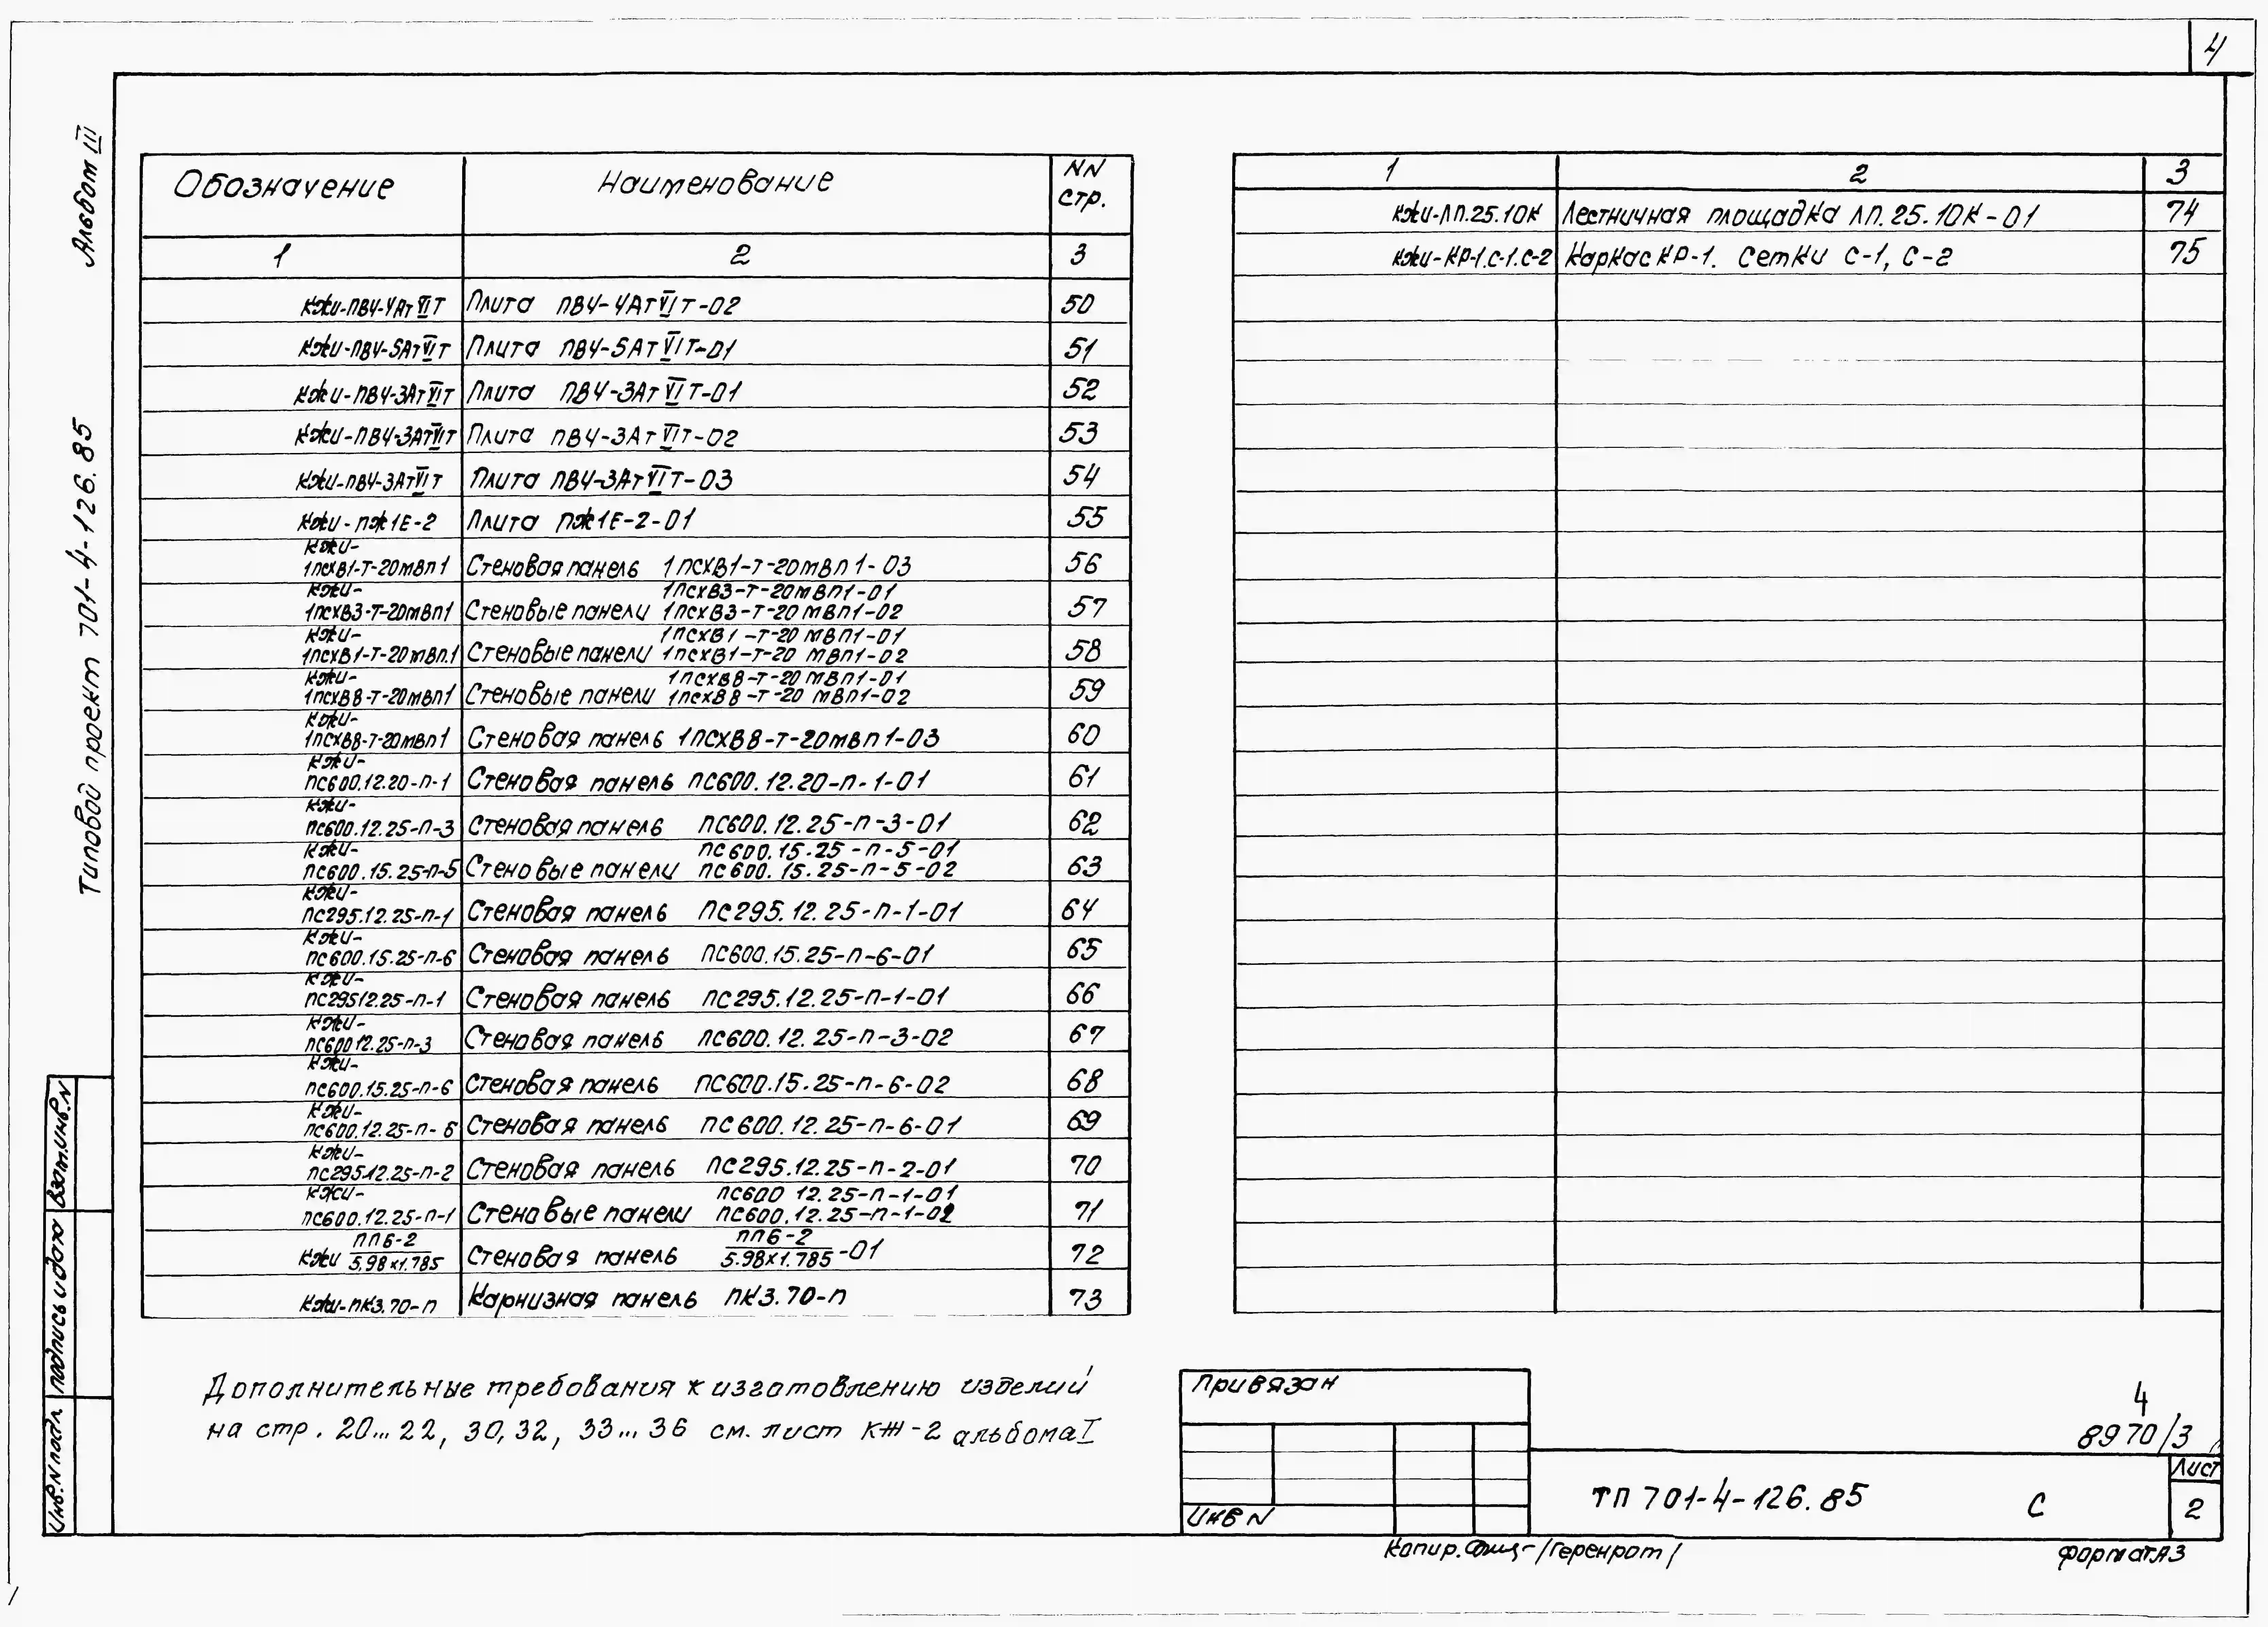 4
Альбом III
Типовой проект 701-4-126.85
Обозначение Наименование NN стр.
1 2 3
КЖИ-ПВ4-4АтVIТ Плита ПВ4-4АтVIТ-02 50
КЖИ-ПВ4-5АтVIТ Плита ПВ4-5АтVIТ-01 51
КЖИ-ПВ4-3АтVIТ Плита ПВ4-3АтVIТ-01 52
КЖИ-ПВ4-3АтVIТ Плита ПВ4-3АтVIТ-02 53
КЖИ-ПВ4-3АтVIТ Плита ПВ4-3АтVIТ-03 54
КЖИ-ПЖ1Е-2 Плита ПЖ1Е-2-01 55
КЖИ-
1ПСХВ1-Т-20мвп1 Стеновая панель 1ПСХВ1-Т-20мвп1-03 56
КЖИ- 1ПСХВ3-Т-20мвп1-01
1ПСХВ3-Т-20мвп1 Стеновые панели 1ПСХВ3-Т-20мвп1-02 57
КЖИ- 1ПСХВ1-Т-20 мвп1-01
1ПСХВ1-Т-20мвп.1 Стеновые панели 1ПСХВ1-Т-20 мвп1-02 58
КЖИ- 1ПСХВ8-Т-20мвп1-01
1ПСХВ8-Т-20мвп1 Стеновые панели 1ПСХВ8-Т-20 мвп1-02 59
КЖИ-
1ПСХВ8-Т-20мвп1 Стеновая панель 1ПСХВ8-Т-20мвп1-03 60
КЖИ-
ПС600.12.20-П-1 Стеновая панель ПС600.12.20-П-1-01 61
КЖИ-
ПС600.12.25-П-3 Стеновая панель ПС600.12.25-П-3-01 62
КЖИ- ПС600.15.25-П-5-01
ПС600.15.25-П-5 Стеновые панели ПС600.15.25-П-5-02 63
КЖИ-
ПС295.12.25-П-1 Стеновая панель ПС295.12.25-П-1-01 64
КЖИ-
ПС600.15.25-П-6 Стеновая панель ПС600.15.25-П-6-01 65
КЖИ-
ПС29512.25-П-1 Стеновая панель ПС295.12.25-П-1-01 66
КЖИ-
ПС60012.25-П-3 Стеновая панель ПС600.12.25-П-3-02 67
КЖИ-
ПС600.15.25-П-6 Стеновая панель ПС600.15.25-П-6-02 68
КЖИ-
ПС600.12.25-П-6 Стеновая панель ПС600.12.25-П-6-01 69
КЖИ-
ПС295.12.25-П-2 Стеновая панель ПС295.12.25-П-2-01 70
КЖИ- ПС600 12.25-П-1-01
ПС600.12.25-П-1 Стеновые панели ПС600.12.25-П-1-02 71
ПП6-2 ПП6-2
КЖИ 5,98х1.785 Стеновая панель 5.98х1.785-01 72
КЖИ-ПК3.70-П Карнизная панель ПК3.70-П 73
1 2 3
КЖИ-ЛП.25.10К Лестничная площадка ЛП.25.10К-01 74
КЖИ-КР-1.С-1.С-2 Каркас КР-1. Сетки С-1, С-2 75
Дополнительные требования к изготовлению изделий
на стр. 20...22, 30, 32, 33...36 см. лист КЖ-2 альбома I
Взам.инв.N
Подпись и дата
Инв.N подл.
Привязан
Инв N
4
8970/3
ТП 701-4-126.85 С
Лист
2
Копир. /Геренрот/
Формат А3